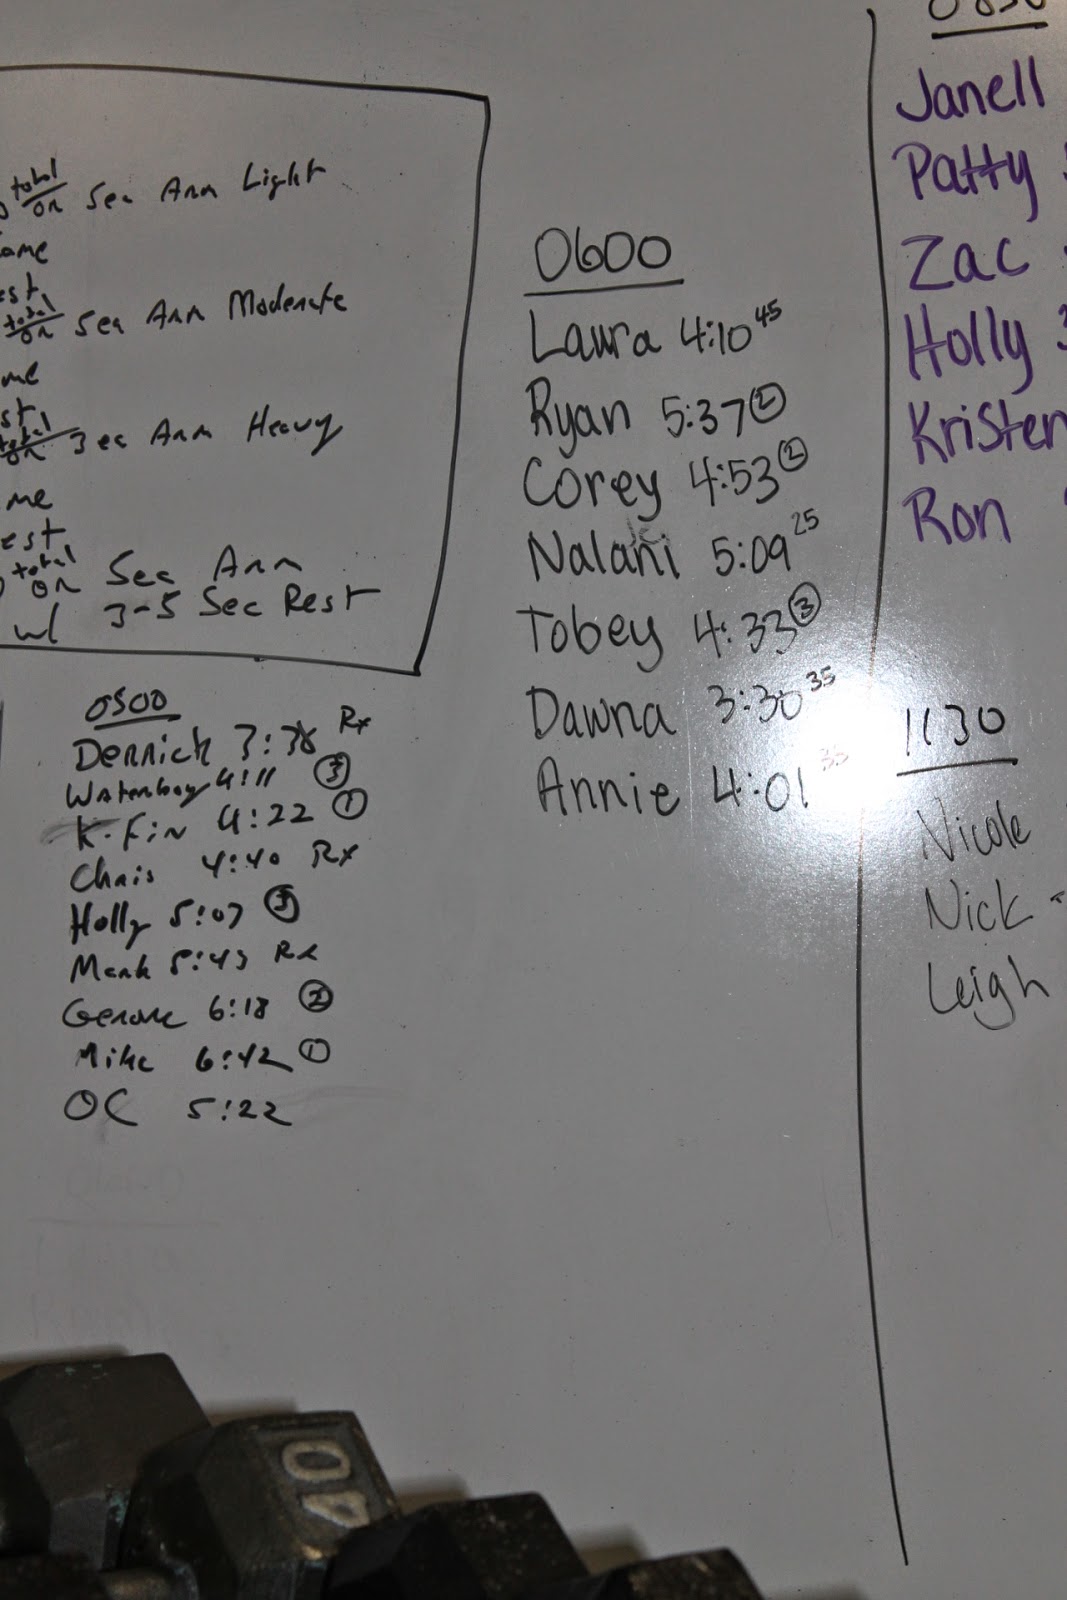 total
on Sec Arm Light
ame
est
total
on Sec Arm Moderate
me
st
total
on 3 ec Arm Heavy
me
est
total
on Sec Arm
w/ 3-5 Sec Rest
0500
Derrick 3:38 Rx
Waterboy 4:11 ③
K-Fin 4:22 ①
Chris 4:40 Rx
Holly 5:07 ③
Mark 5:43 Rx
6:18 ②
Mike 6:42 ①
OC 5:22
0600
Laura 4:10 45
Ryan 5:37 ②
Corey 4:53 ②
Nalani 5:09 25
Tobey 4:33 ③
Dawna 3:30 35
Annie 4:01 35
Janell
Patty
Zac
Holly 3
Kristen
Ron
1130
Nicole
Nick -
Leigh
40